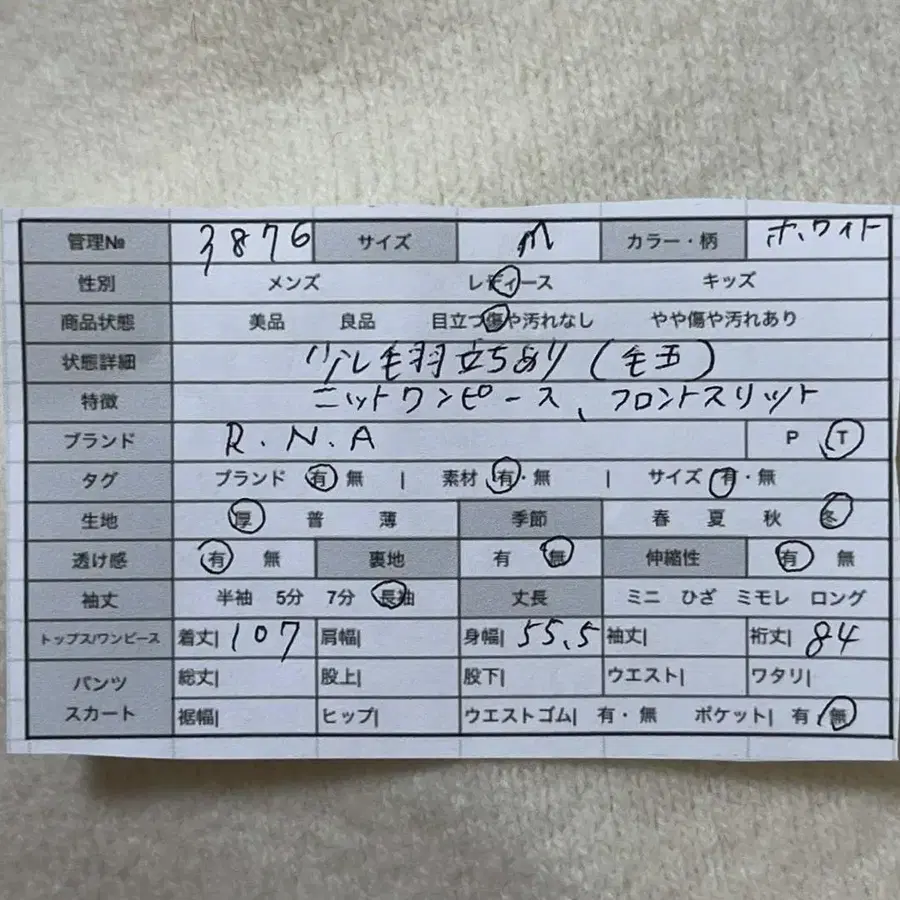 管理№ 3876 サイズ M カラー・柄 ホワイト
性別 メンズ レディース キッズ
商品状態 美品 良品 目立つ傷や汚れなし やや傷や汚れあり
状態詳細 少し毛羽立ちあり(毛玉)
特徴 ニットワンピース、フロントスリット
ブランド R.N.A P T
タグ ブランド 有 無 | 素材 有・無 | サイズ 有・無
生地 厚 普 薄 季節 春 夏 秋 冬
透け感 有 無 裏地 有 無 伸縮性 有 無
袖丈 半袖 5分 7分 長袖 丈長 ミニ ひざ ミモレ ロング
トップス/ワンピース 着丈| 107 肩幅| 身幅| 55.5 袖丈| 裄丈| 84
パンツ 総丈| 股上| 股下| ウエスト| ワタリ|
スカート 裾幅| ヒップ| ウエストゴム| 有・無 ポケット| 有/無